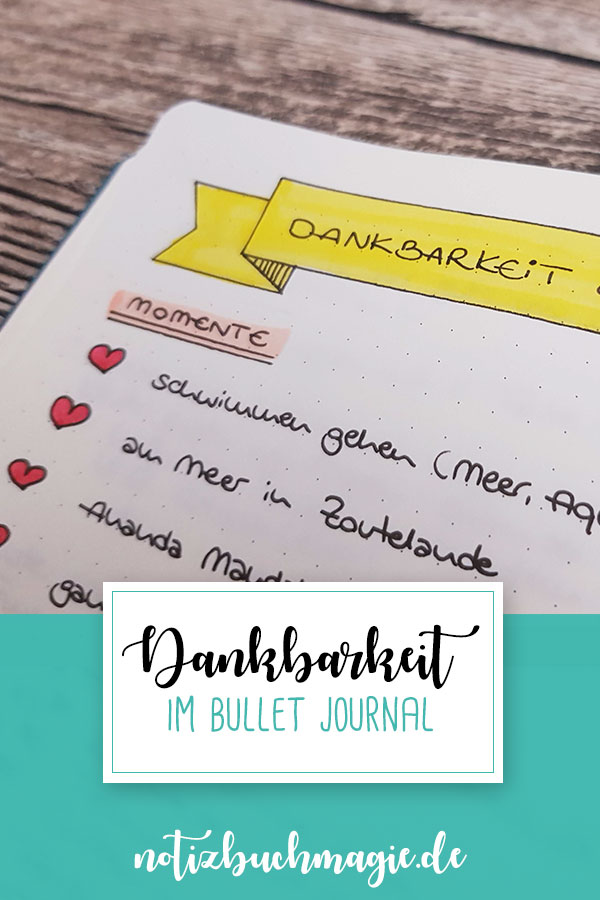 DANKBARKEIT
MOMENTE
schwimmen gehen (Meer,
am Meer in Zoutelande
Ananda
Dankbarkeit
IM BULLET JOURNAL
notizbuchmagie.de